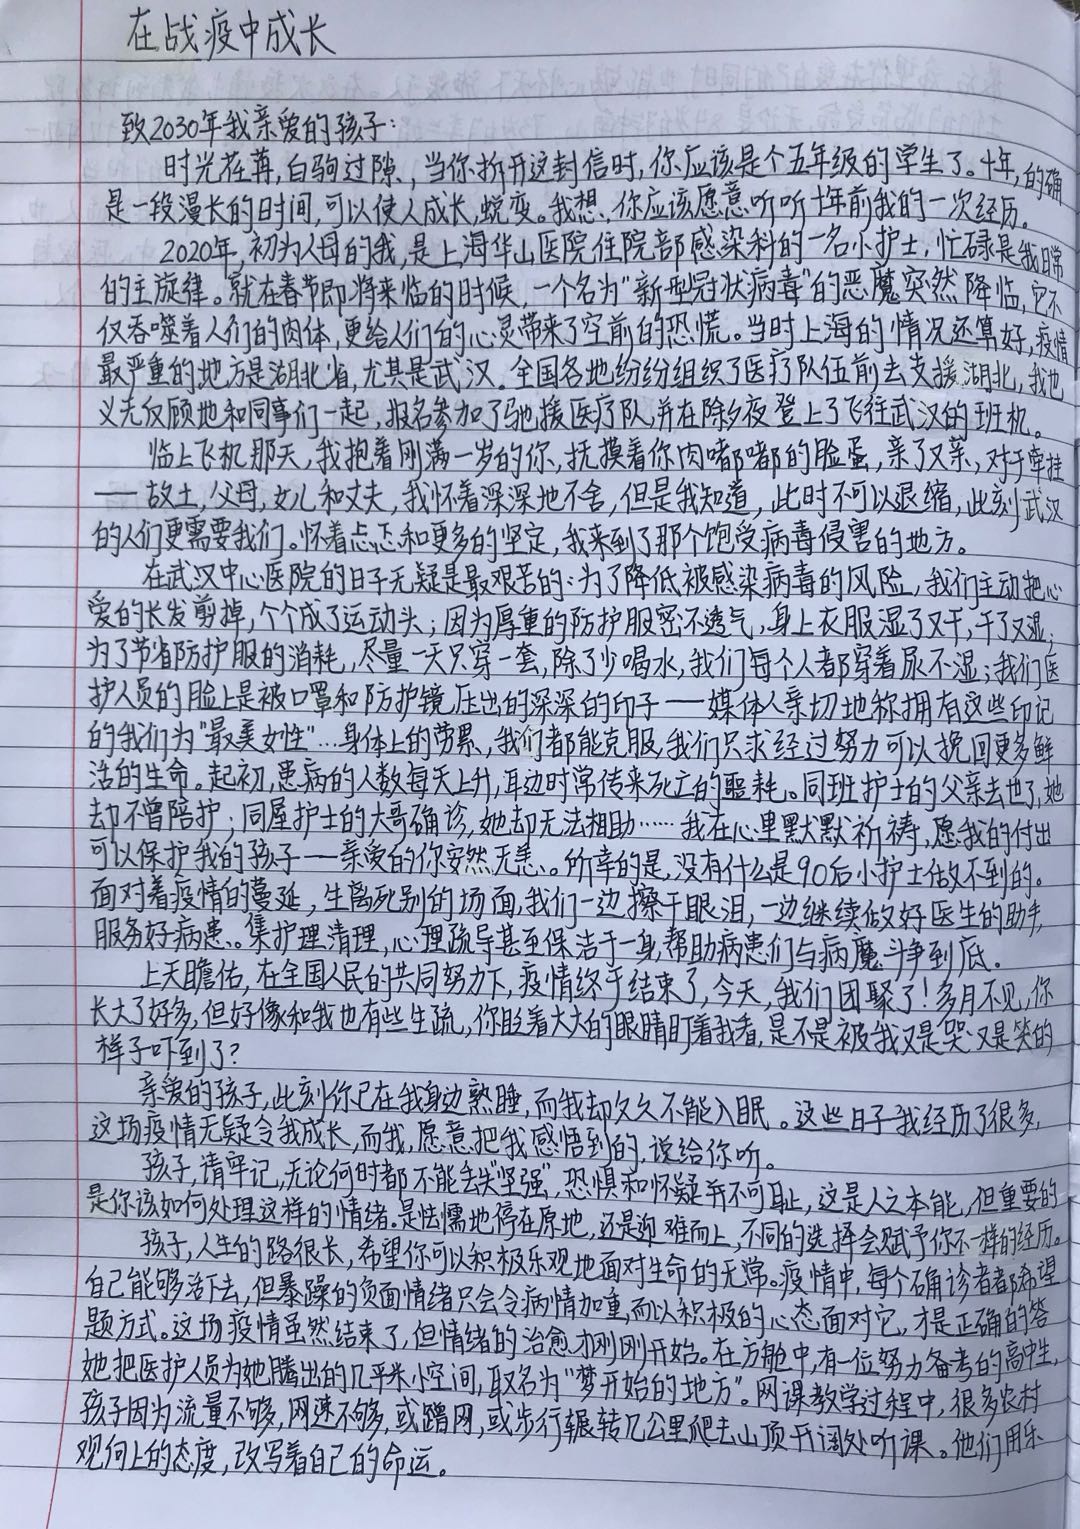 在战疫中成长
致2030年我亲爱的孩子：
时光荏苒，白驹过隙，当你拆开这封信时，你应该是个五年级的学生了。十年，的确
是一段漫长的时间，可以使人成长，蜕变。我想，你应该愿意听听十年前我的一次经历。
2020年，初为人母的我，是上海华山医院住院部感染科的一名小护士，忙碌是我日常
的主旋律。就在春节即将来临的时候，一个名为“新型冠状病毒”的恶魔突然降临，它不
仅吞噬着人们的肉体，更给人们的心灵带来了空前的恐慌。当时上海的情况还算好，疫情
最严重的地方是湖北省，尤其是武汉。全国各地纷纷组织了医疗队伍前去支援湖北，我也
义无反顾地和同事们一起，报名参加了驰援医疗队，并在除夕夜登上了飞往武汉的班机。
临上飞机那天，我抱着刚满一岁的你，抚摸着你肉嘟嘟的脸蛋，亲了又亲，对于牵挂
——故土，父母，女儿和丈夫，我怀着深深地不舍，但是我知道，此时不可以退缩，此刻武汉
的人们更需要我们。怀着忐忑和更多的坚定，我来到了那个饱受病毒侵害的地方。
在武汉中心医院的日子无疑是最艰苦的：为了降低被感染病毒的风险，我们主动把心
爱的长发剪掉，个个成了运动头；因为厚重的防护服密不透气，身上衣服湿了又干，干了又湿；
为了节省防护服的消耗，尽量一天只穿一套，除了少喝水，我们每个人都穿着尿不湿；我们医
护人员的脸上是被口罩和防护镜压出的深深的印子——媒体人亲切地称拥有这些印记
的我们为“最美女性”…身体上的劳累，我们都能克服，我们只求经过努力可以挽回更多鲜
活的生命。起初，患病的人数每天上升，耳边时常传来死亡的噩耗。同班护士的父亲去世了，她
却不曾陪护；同屋护士的大哥确诊，她却无法相助……我在心里默默祈祷，愿我的付出
可以保护我的孩子——亲爱的你安然无恙。所幸的是，没有什么是90后小护士做不到的。
面对着疫情的蔓延，生离死别的场面，我们一边擦干眼泪，一边继续做好医生的助手，
服务好病患。集护理清理，心理疏导甚至保洁于一身，帮助病患们与病魔斗争到底。
上天瞻佑，在全国人民的共同努力下，疫情终于结束了，今天，我们团聚了！多月不见，你
长大了好多，但好像和我也有些生疏，你眨着大大的眼睛盯着我看，是不是被我又是哭又是笑的
样子吓到了？
亲爱的孩子，此刻你已在我身边熟睡，而我却久久不能入眠。这些日子我经历了很多，
这场疫情无疑令我成长，而我，愿意把我感悟到的，说给你听。
孩子，请牢记，无论何时都不能丢失“坚强”，恐惧和怀疑并不可耻，这是人之本能，但重要的
是你该如何处理这样的情绪。是怯懦地停在原地，还是迎难而上，不同的选择会赋予你不一样的经历。
孩子，人生的路很长，希望你可以积极乐观地面对生命的无常。疫情中，每个确诊者都希望
自己能够活下去，但暴躁的负面情绪只会令病情加重，而以积极的心态面对它，才是正确的答
题方式。这场疫情虽然结束了，但情绪的治愈才刚刚开始。在方舱中，有一位努力备考的高中生，
她把医护人员为她腾出的几平米小空间，取名为“梦开始的地方”。网课教学过程中，很多农村
孩子因为流量不够，网速不够，或蹭网，或步行辗转几公里爬去山顶开阔处听课。他们用乐
观向上的态度，改写着自己的命运。